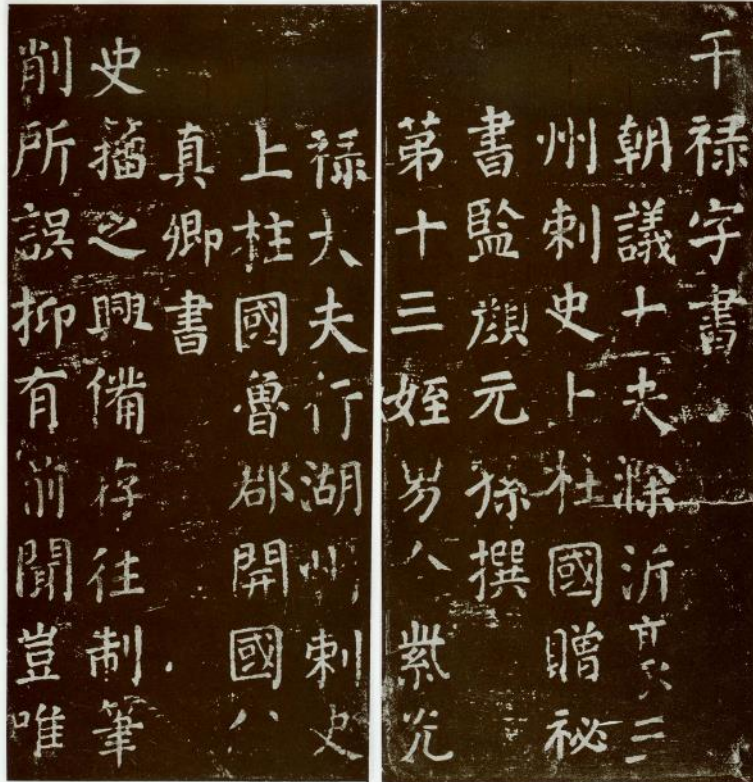 干禄字書
朝議大夫滁沂豪三
州刺史上柱國贈祕
書監顔元孫撰
第十三姪男金紫光
禄大夫行湖州刺史
上柱國魯郡開國公
真卿書
史籀之興備存往制筆
削所誤抑有前聞豈唯